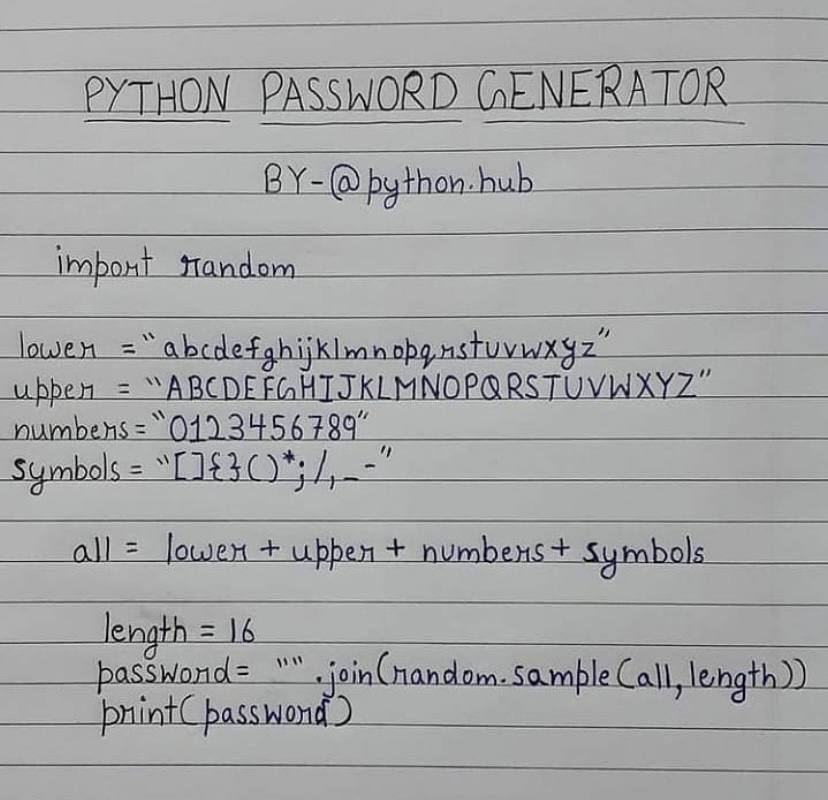 PYTHON PASSWORD GENERATOR
BY-@python.hub
import random
lower = "abcdefghijklmnopqrstuvwxyz"
upper = "ABCDEFGHIJKLMNOPQRSTUVWXYZ"
numbers = "0123456789"
symbols = "[]{}()*;/,_-"
all = lower + upper + numbers + symbols
length = 16
password = "".join(random.sample(all, length))
print(password)